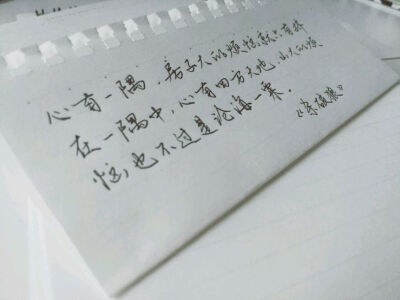 心有一隅，房子大的烦恼就只有挤
在一隅中，心有四方天地，山大的烦
恼，也不过是沧海一粟．